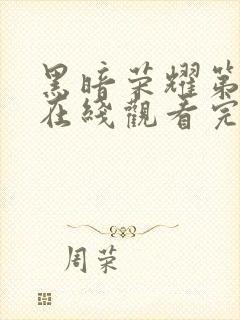 黑暗荣耀第
在线觀看完
周荣